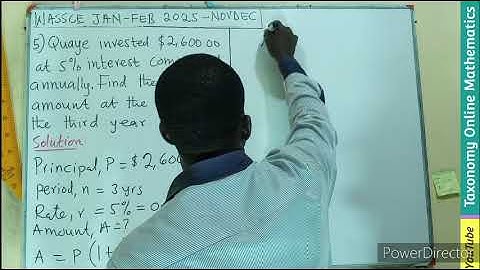 WASSCE JAN-FEB 2025-NOVDEC
5) Quaye invested $2,600.00
at 5% interest com
annually. Find the
amount at the
the third year
Solution
Principal, P = $2,600
Period, n = 3yrs
Rate, r = 5% = 0.
Amount, A = ?
A = P (1+
Taxonomy Online Mathematics
YouTube
PowerDirector